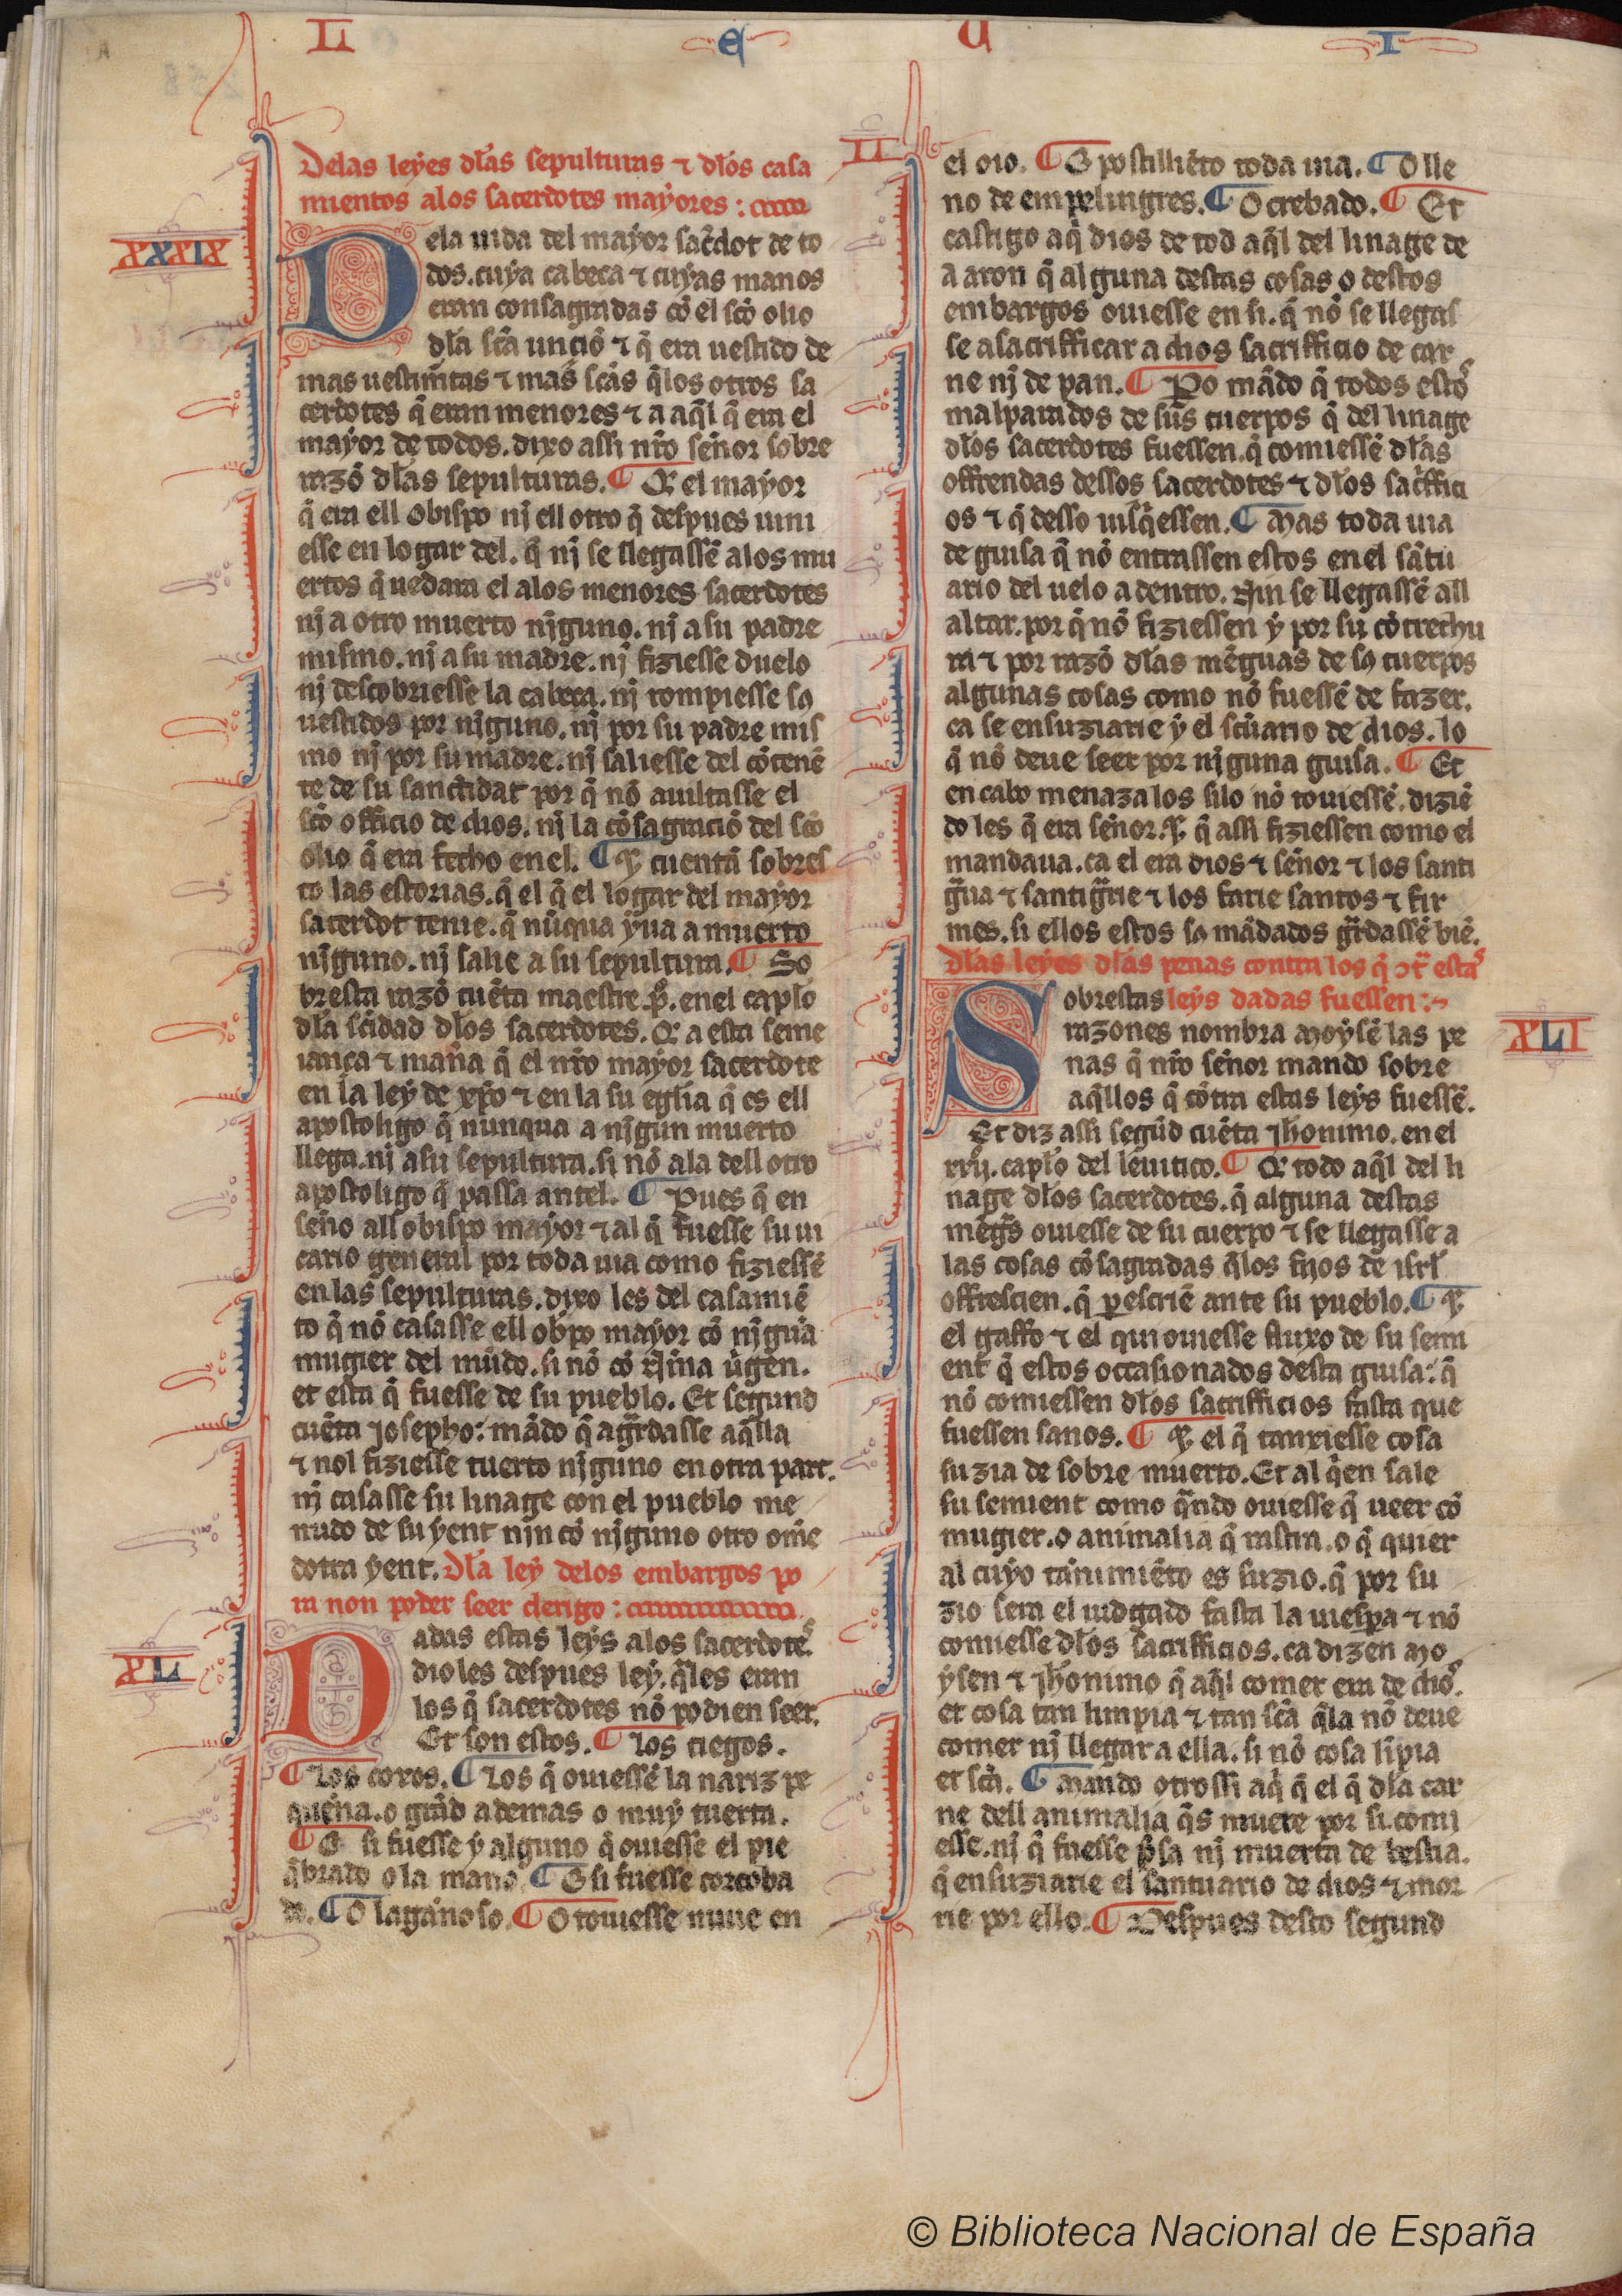 L e U I
II
Delas leyes dłas sepulturas ⁊ dłos casa
mientos alos sacerdotes mayores :
XXXIX
Dela uida del mayor sac̃dot de to
dos. cuya cabeca ⁊ cuyas manos
eran consagradas cõ el sc̃o olio
dła sc̃a unciõ ⁊ q̃ era uestido de
mas uestim̃tas ⁊ mas sc̃as q̃los otros sa
cerdotes q̃ eran menores ⁊ a aq̃l q̃ era el
mayor de todos. dixo assi nr̃o señor sobre
razõ dłas sepulturas. ¶ Q̃ el mayor
q̃ era ell obispo nj ell otro q̃ despues uini
esse en logar del. q̃ nj se llegassẽ alos mu
ertos q̃ uedara el alos menores sacerdotes
nj a otro muerto njguno. nj a su padre
mismo. nj a su madre. nj fiziesse duelo
nj descobriesse la cabeca. nj rompiesse sꝯ
uestidos por njguno. nj por su padre mis
mo nj por su madre. nj saliesse del cõtenẽ
te de su sanctidat por q̃ nõ auiltasse el
sc̃o officio de dios. nj la cõsagraciõ del sc̃o
olio q̃ era fecho en el. ¶ ⁊ cuentã sobres
to las estorias. q̃ el q̃ el logar del mayor
sacerdot tenie. q̃ nũqua yua a muerto
njguno. nj salie a su sepultura. ¶ So
bresta razõ cuẽta maestre .p̃. enel capło
dła sc̃idad dłos sacerdotes. Q̃ a esta seme
ianca ⁊ mañа q̃ el nr̃o mayor sacerdote
en la ley de xp̃o ⁊ en la su egłia q̃ es ell
apostoligo q̃ nunqua a njgun muerto
llega. nj a su sepultura. si nõ ala dell otro
apostoligo q̃ passa antel. ¶ Pues q̃ en
seño all obispo mayor ⁊ al q̃ fuesse su ui
cario general por toda uia como fiziessẽ
en las sepulturas. dixo les del casamiẽ
to q̃ nõ casasse ell ob̃po mayor cõ njgũa
mugier del mũdo. si nõ cõ
et esta q̃ fuesse de su pueblo. Et segund
cuẽta josepho: mãdo q̃ agr̃dasse aq̃lla
⁊ nol fiziesse tuerto njguno en otra part.
nj casasse su linage con el pueblo me
nudo de su yent njn cõ njguno otro om̃e
dotra yent. Dła ley delos embargos po
ra non poder seer clerigo :
XL
Dadas estas leys alos sacerdotes
dioles despues ley. q̃les eran
los q̃ sacerdotes nõ podien seer.
Et son estos. ¶ Los ciegos.
¶ Los coxos. ¶ Los q̃ ouiessẽ la nariz pe
queña. o grãd ademas o muy tuerta.
¶ O si fuesse y alguno q̃ ouiesse el pie
q̃brado o la mano. ¶ O si fuesse corcoba
do. ¶ O lagañoso. ¶ O touiesse nuue en
el oio. ¶ O postilliẽto toda uia. ¶ O lle
no de empelingres. ¶ O crebado. ¶ Et
castigo aq̃ dios de tod aq̃l del linage de
a aron q̃ alguna destas cosas o destos
embargos ouiesse en si. q̃ nõ se llegas
se a sacrifficar a dios sacrifficio de car
ne nj de pan. ¶ Po mãdo q̃ todos estos
malparados de sus cuerpos q̃ del linage
dłos sacerdotes fuessen. q̃ comiessẽ dłas
offrendas dessos sacerdotes ⁊ dłos sac̃ffici
os ⁊ q̃ desso uisq̃essen. ¶ Mas toda uia
de guisa q̃ nõ entrassen estos en el sãtu
ario del uelo adentro. Njn se llegassẽ all
altar. por q̃ nõ fiziessen y por su cõtrechu
ra ⁊ por razõ dłas mẽguas de sꝯ cuerpos
algunas cosas como nõ fuessẽ de fazer.
ca se ensuziarie y el sc̃uario de dios. lo
q̃ nõ deue seer por njguna guisa. ¶ Et
en cabo menazalos silo nõ touiessẽ. diziẽ
do les q̃ era señor. ⁊ q̃ assi fiziessen como el
mandaua. ca el era dios ⁊ señor ⁊ los santi
g̃ua ⁊ santig̃rie ⁊ los farie santos ⁊ fir
mes. si ellos estos sꝯ mãdados gr̃dassẽ biẽ.
Dłas leyes dłas penas contra los q̃ ↄt̃ estas
leys dadas fuessen :~
XLI
Sobrestas
razones nombra Moysẽ las pe
nas q̃ nr̃o señor mando sobre
aq̃llos q̃ cõtra estas leys fuessẽ.
Et diz assi segũd cuẽta jh̃onimo. en el
xxij. capło del leuitico. ¶ Q̃ todo aq̃l del li
nage dłos sacerdotes. q̃ alguna destas
mẽg̃s ouiesse de su cuerpo ⁊ se llegasse a
las cosas cõsagradas q̃los fijos de isrł
offrescien. q̃ p̱escriẽ ante su pueblo. ¶ ⁊
el gaffo ⁊ el qui ouiesse fluxo de su semi
ent q̃ estos occasionados desta guisa: q̃
nõ comiessen dłos sacrifficios fasta que
fuessen sanos. ¶ ⁊ el q̃ tanxiesse cosa
suzia de sobre muerto. Et al q̃en sale
su semient como q̃ndo ouiesse q̃ ueer cõ
mugier. o animalia q̃ rastra. o q̃ quier
al cuyo tanimiẽto es suzio. q̃ por su
zio sera el iudgado fasta la uiespa ⁊ nõ
comiesse dłos sacrifficios. ca dizen Mo
ysen ⁊ jh̃onimo q̃ aq̃l comer era de dios.
et cosa tan limpia ⁊ tan sc̃a q̃la nõ deue
comer nj llegar a ella. si nõ cosa lĩpia
et sc̃a. ¶ Mando otrossi aq̃ q̃ el q̃ dła car
ne dell animalia q̃s muere por si. comi
esse. nj q̃ fuesse p̃sa nj muerta de bestia.
q̃ ensuziarie el santuario de dios ⁊ mor
rie por ello. ¶ Despues desto segund
© Biblioteca Nacional de España